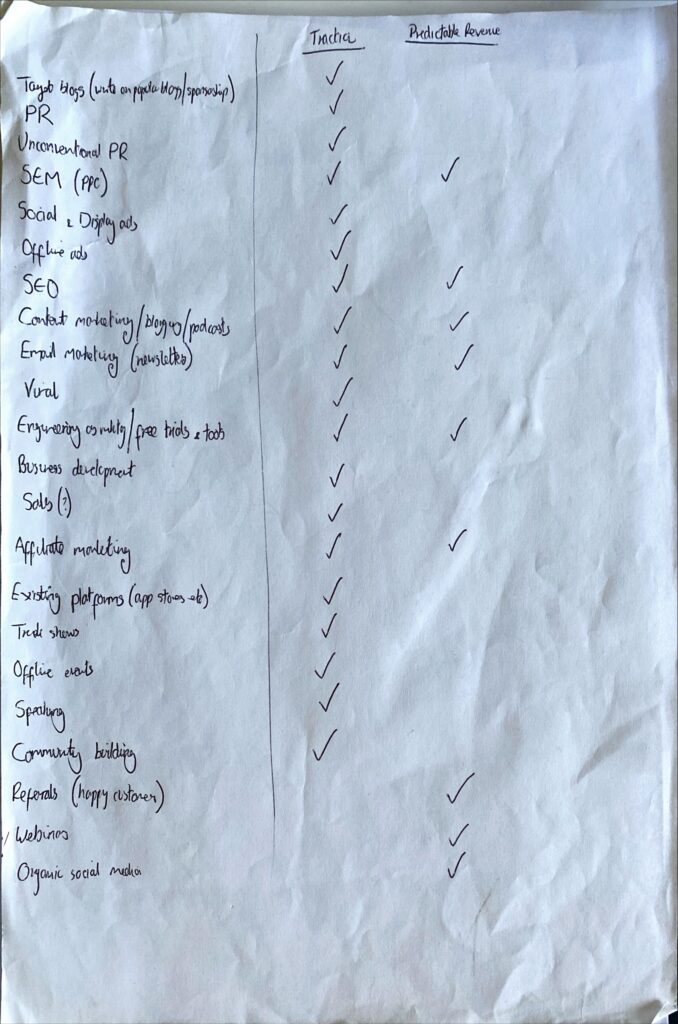 Traction Predictable Revenue
Target blogs (write on popular blogs/sponsorship) ✓
PR ✓
Unconventional PR ✓
SEM (PPC) ✓ ✓
Social & Display ads ✓
Offline ads ✓
SEO ✓ ✓
Content marketing/blogging/podcasts ✓ ✓
Email marketing (newsletters) ✓ ✓
Viral ✓
Engineering as mktg/free trials & tools ✓ ✓
Business development ✓
Sales (?) ✓
Affiliate marketing ✓ ✓
Existing platforms (app stores etc) ✓
Trade shows ✓
Offline events ✓
Speaking ✓
Community building ✓
Referrals (happy customer) ✓
Webinars ✓
Organic social media ✓